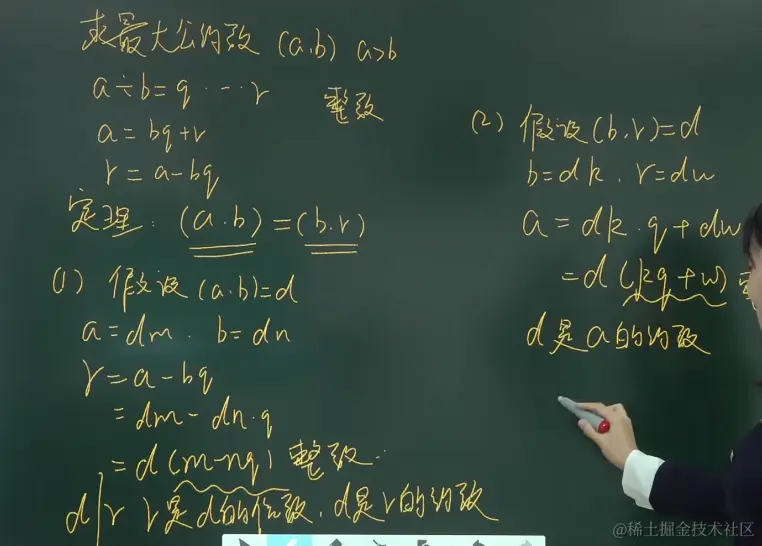 求最大公约数 (a.b) a>b
a÷b=q…r 整数
a=bq+r
r=a-bq
定理: (a.b)=(b.r)
(1) 假设(a.b)=d
a=dm. b=dn
r=a-bq
=dm-dn.q
=d(m-nq) 整数.
d|r r是d的倍数. d是r的约数
(2) 假设(b.r)=d
b=dk. r=dw
a=dk.q+dw
=d(kq+w)
d是a的约数
@稀土掘金技术社区